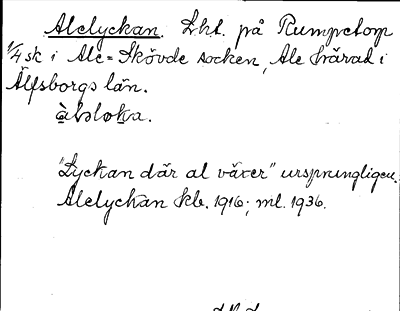 Alelyckan. Lht. på Rumpetorp
1/4 sk i Ale-Skövde socken, Ale härad i
Älfsborgs län.
"Lyckan där al växer" ursprungligen.
Alelyckan kb. 1916; ml. 1936.